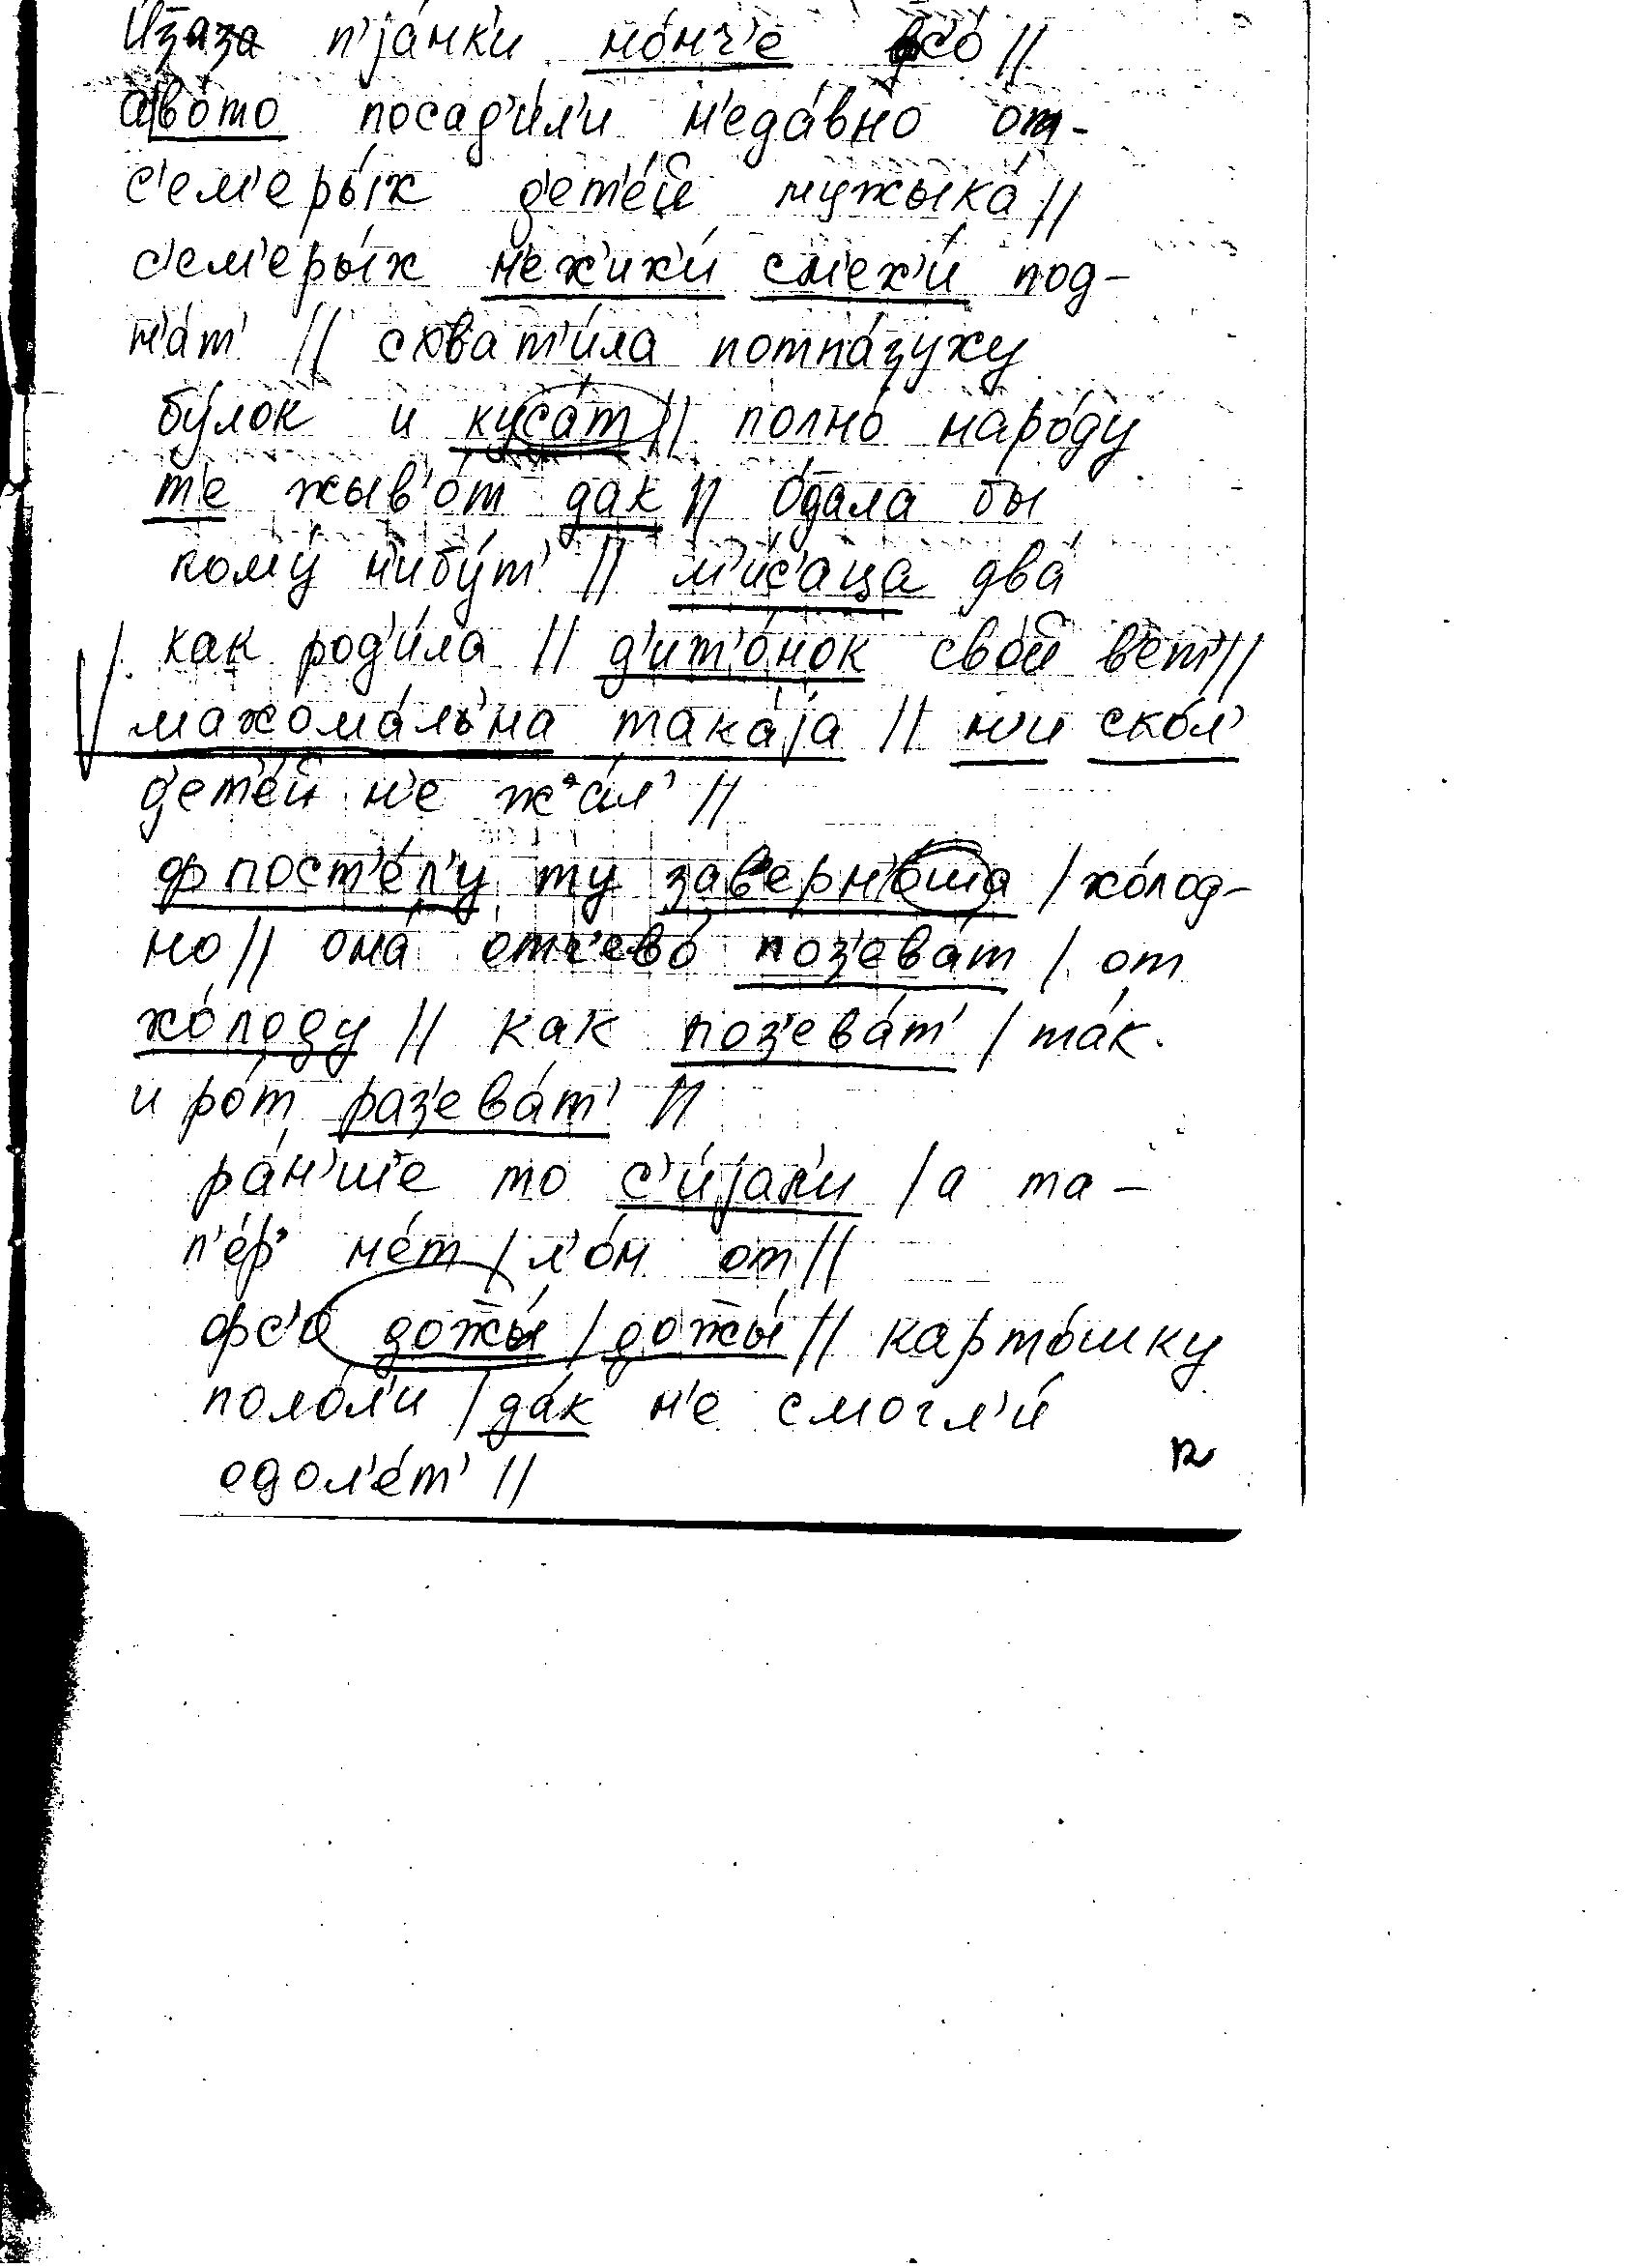 Изаза п'jа́нк'и но́нч'е фс'о́ //
Овото посад'и́л'и н'еда́вно от-
с'ем'еры́х д'ет'е́й мужыка́ //
с'ем'еры́х н'ех'ихи́ см'ех'и́ под-
н'а́т' // схват'и́ла потпа́зуху
бу́лок и куса́т // полно́ наро́ду
т'е жыв'о́т дак // о́дала бы
кому́ н'ибу́т' // м'и́с'аца два́
как род'и́ла // д'ит'о́нок свой в'ет' //
махома́л'на така́jа // н'и ско́л'
д'ет'е́й н'е жа́л' //
ф пост'е́л'у ту зав'ерн'о́ша / хо́лод-
но // она́ отч'ево́ поз'ева́т / от
хо́лоду // как поз'ева́т' / та́к
и ро́т раз'ева́т' //
ра́н'ше то с'и́jал'и / а та-
п'е́р' не́т / л'о́н от //
фс'о дожы́ / дожы́ // карто́шку
поло́л'и / да́к н'е смогл'и́
одол'е́т' //